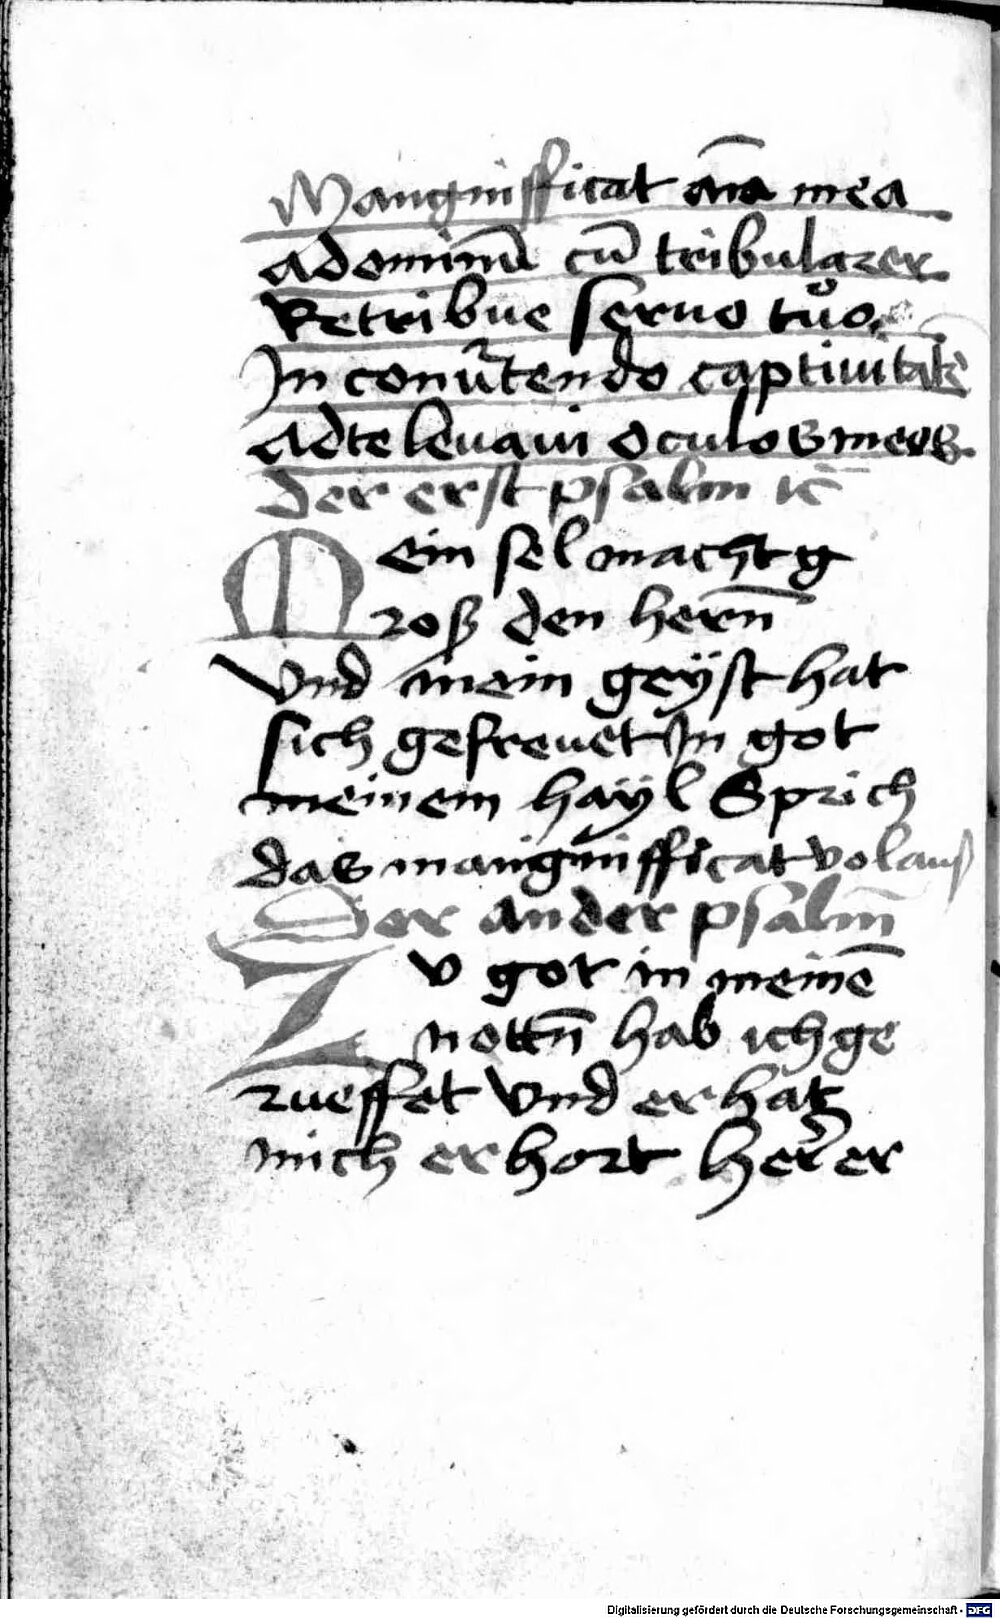 Mangnifficat aīa mea
adominū cū tribularer
Retribue seruo tůo
In conuͬtendo captiuitatē
Adte leuaui oculos meos
Der erst psalm
Mein sel macht g
roß den hern̄
Vnd mein geÿst hat
sich gefreuet In got
meinem haÿl Sprich
das mangnifficat vol auß
Der ander psalm̄
Zv got in meinē
nottn̄ hab ich ge
rueffet Vnd er hat
mich erhort Herͬ er
Digitalisierung gefördert durch die Deutsche Forschungsgemeinschaft - DFG